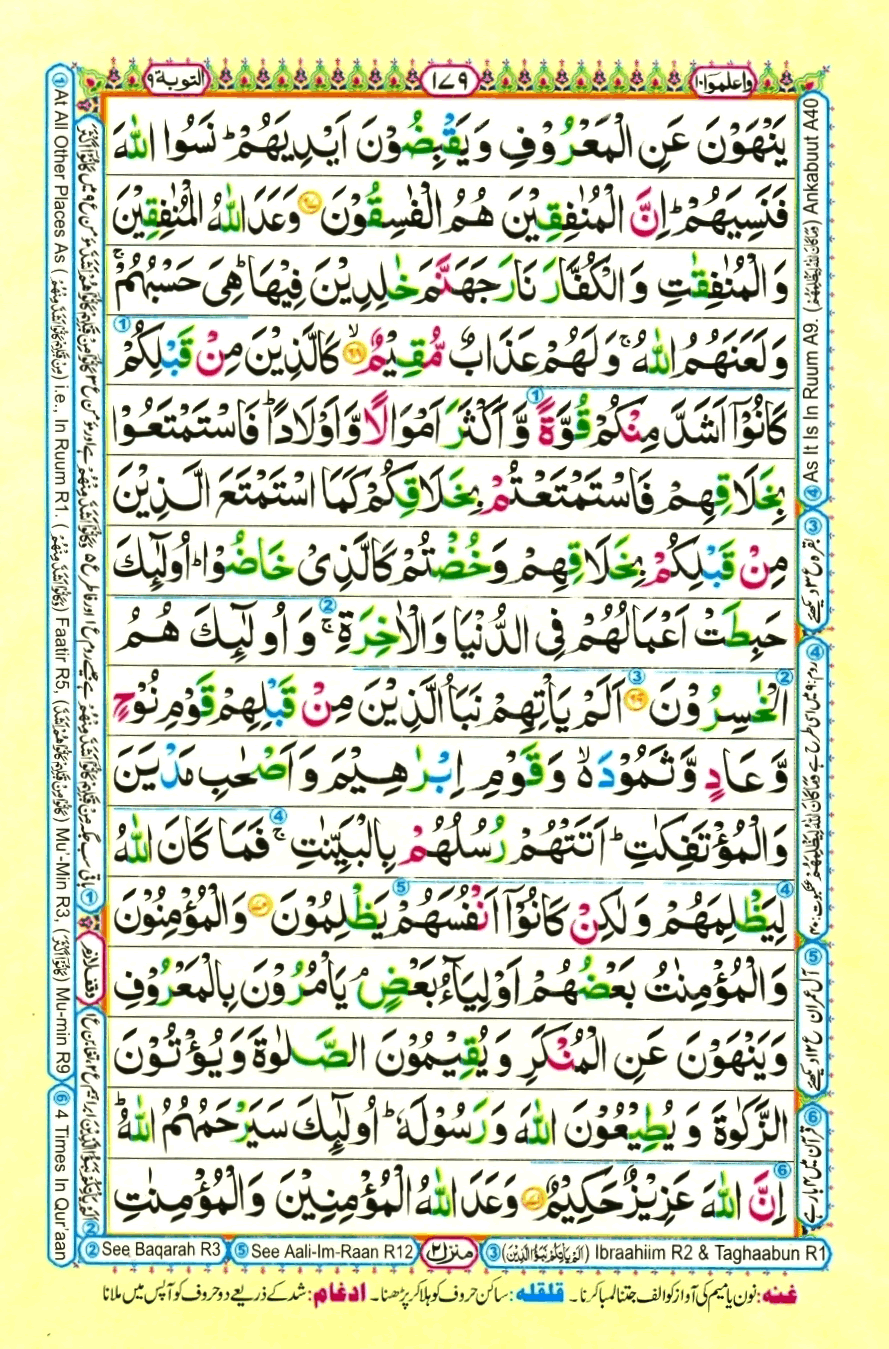 واعلموا١٠
١٧٩
التوبة ٩
يَنْهَوْنَ عَنِ الْمَعْرُوْفِ وَيَقْبِضُوْنَ اَيْدِيَهُمْ ؕ نَسُوا اللّٰهَ
فَنَسِيَهُمْ ؕ اِنَّ الْمُنٰفِقِيْنَ هُمُ الْفٰسِقُوْنَ ۝ وَعَدَ اللّٰهُ الْمُنٰفِقِيْنَ
وَالْمُنٰفِقٰتِ وَالْكُفَّارَ نَارَ جَهَنَّمَ خٰلِدِيْنَ فِيْهَا ؕ هِيَ حَسْبُهُمْ ۚ
وَلَعَنَهُمُ اللّٰهُ ۚ وَلَهُمْ عَذَابٌ مُّقِيْمٌ ۝ۙ كَالَّذِيْنَ مِنْ قَبْلِكُمْ
كَانُوْۤا اَشَدَّ مِنْكُمْ قُوَّةً وَّاَكْثَرَ اَمْوَالًا وَّاَوْلَادًا ؕ فَاسْتَمْتَعُوْا
بِخَلَاقِهِمْ فَاسْتَمْتَعْتُمْ بِخَلَاقِكُمْ كَمَا اسْتَمْتَعَ الَّذِيْنَ
مِنْ قَبْلِكُمْ بِخَلَاقِهِمْ وَخُضْتُمْ كَالَّذِيْ خَاضُوْا ؕ اُولٰٓئِكَ
حَبِطَتْ اَعْمَالُهُمْ فِي الدُّنْيَا وَالْاٰخِرَةِ ۚ وَاُولٰٓئِكَ هُمُ
الْخٰسِرُوْنَ ۝ اَلَمْ يَاْتِهِمْ نَبَاُ الَّذِيْنَ مِنْ قَبْلِهِمْ قَوْمِ نُوْحٍ
وَّعَادٍ وَّثَمُوْدَ ۙ وَقَوْمِ اِبْرٰهِيْمَ وَاَصْحٰبِ مَدْيَنَ
وَالْمُؤْتَفِكٰتِ ؕ اَتَتْهُمْ رُسُلُهُمْ بِالْبَيِّنٰتِ ۚ فَمَا كَانَ اللّٰهُ
لِيَظْلِمَهُمْ وَلٰكِنْ كَانُوْۤا اَنْفُسَهُمْ يَظْلِمُوْنَ ۝ وَالْمُؤْمِنُوْنَ
وَالْمُؤْمِنٰتُ بَعْضُهُمْ اَوْلِيَآءُ بَعْضٍ ۘ يَاْمُرُوْنَ بِالْمَعْرُوْفِ
وَيَنْهَوْنَ عَنِ الْمُنْكَرِ وَيُقِيْمُوْنَ الصَّلٰوةَ وَيُؤْتُوْنَ
الزَّكٰوةَ وَيُطِيْعُوْنَ اللّٰهَ وَرَسُوْلَهٗ ؕ اُولٰٓئِكَ سَيَرْحَمُهُمُ اللّٰهُ ؕ
اِنَّ اللّٰهَ عَزِيْزٌ حَكِيْمٌ ۝ وَعَدَ اللّٰهُ الْمُؤْمِنِيْنَ وَالْمُؤْمِنٰتِ
④ As It Is In Ruum A9. Ankabuut A40
① At All Other Places As i.e., In Ruum R1. Faatir R5, Mu'-Min R3, Mu-min R9
⑥ 4 Times In Qur'aan
② See Baqarah R3
⑤ See Aali-Im-Raan R12
منزل٢
③ Ibraahiim R2 & Taghaabun R1
غنه: نون یا میم کی آواز کو الف جتنا لمبا کرنا۔ قلقله: ساکن حروف کو ہلا کر پڑھنا۔ ادغام: شد کے ذریعے دو حروف کو آپس میں ملانا